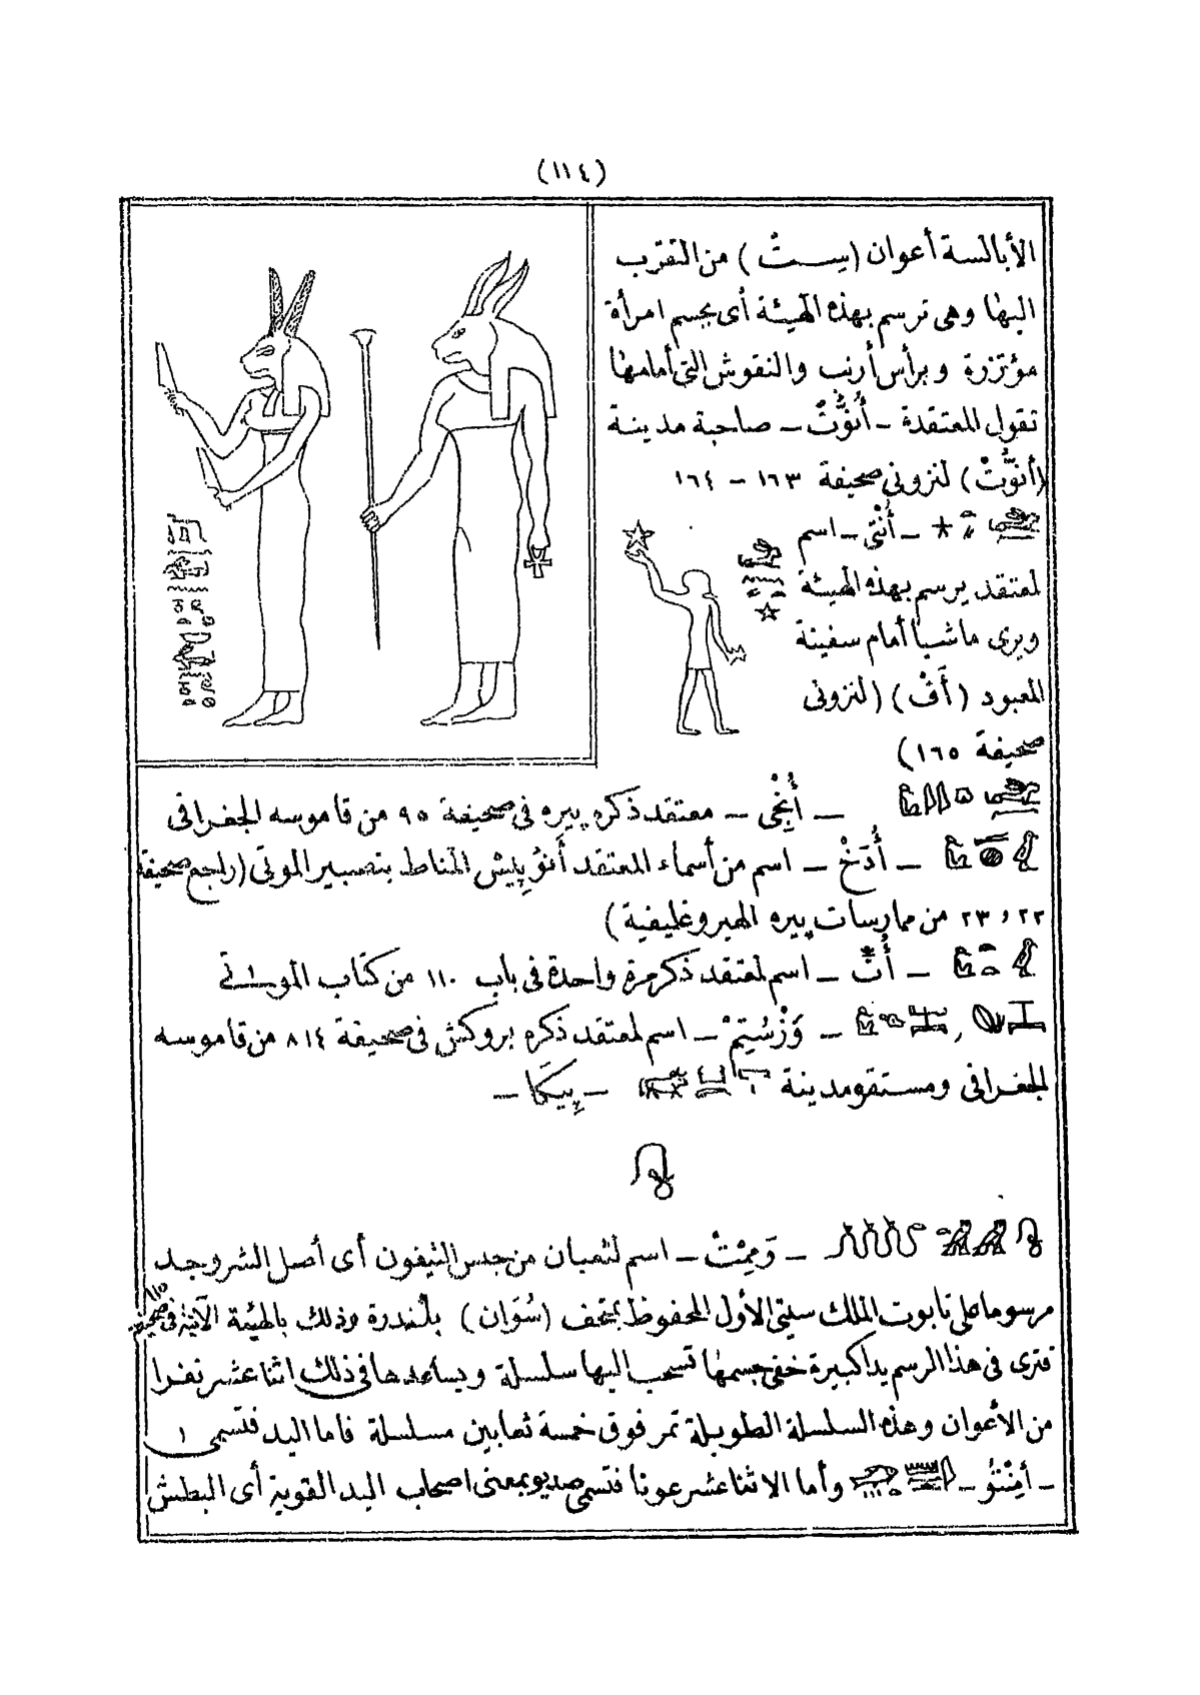 (١١٤)
الأبالسة أعوان (سِـتْ) من التقرب
اليها وهى ترسم بهذه الهيئة أى بجسم امرأة
مؤتزرة وبرأس أرنب والنقوش التى أمامها
تقول المعتقدة – أُنوُّتْ – صاحبة مدينة
(أنوُّتْ) لنزونى صحيفة ١٦٣ – ١٦٤
– أُنْتِى – اسم
لمعتقد يرسم بهذه الهيئة
ويرى ماشيا أمام سفينة
المعبود (أَفْ) (لنزونى
صحيفة ١٦٥)
– أُنْجِى – معتقد ذكره پيره فى صحيفة ٩٥ من قاموسه الجغرافى
– أُدَخْ – اسم من أسماء المعتقد أَنوُپِيش المناط بتصبير الموتى (راجع صحيفة
٢٢ و ٢٣ من ممارسات پيره الهيروغليفية)
– أُتّ – اسم لمعتقد ذكر مرة واحدة فى باب ١١٠ من كتاب الموتى
– وَزْسُتِيمْ – اسم لمعتقد ذكره بروكش فى صحيفة ٨١٤ من قاموسه
الجغرافى ومستقره مدينة – پِيكَا –
– وَمِمْتْ – اسم لثعبان من جنس التيفون أى أصل الشر وجد
مرسوما على تابوت الملك سيتى الأول المحفوظ بمتحف (سُوَان) بلندرة وذلك بالهيئة الآتية فى صحيفة ١١٥
فترى فى هذا الرسم يدا كبيرة خفى جسمها تسحب اليها سلسلة ويساعدها فى ذلك اثنا عشر نفرا
من الأعوان وهذه السلسلة الطويلة تمر فوق خمسة ثعابين مسلسلة فاما اليد فتسمى
– أمِنْتُو – وأما الاثنا عشر عونا فتسمى صديو بمعنى اصحاب اليد القوية أى البطش